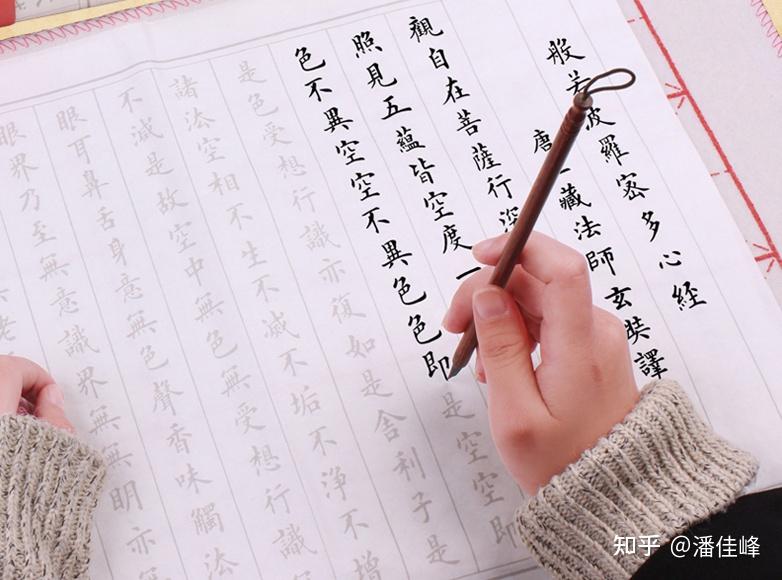 般若波羅蜜多心經
唐三藏法師玄奘譯
觀自在菩薩行深
照見五蘊皆空度一
色不異空空不異色色即是空空即
是色受想行識亦復如是舍利子是
諸法空相不生不滅不垢不淨不增
不減是故空中無色無受想行識
眼耳鼻舌身意無色聲香味觸法
眼界乃至無意識界無無明亦
老
知乎 @潘佳峰